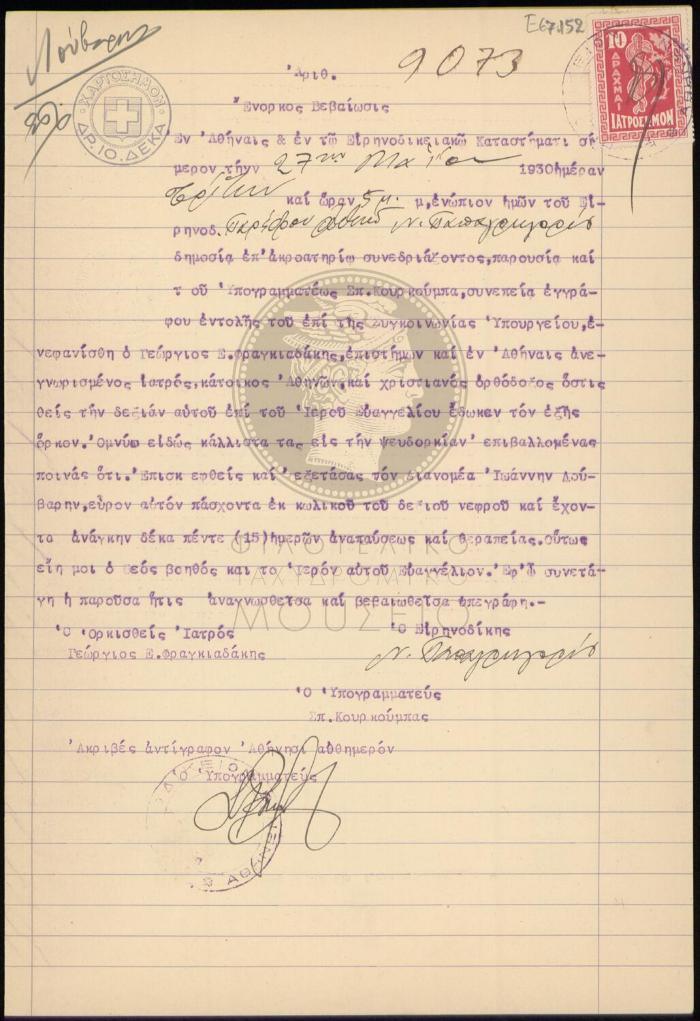 Λούβαρης
Ε67.152
10
ΔΡΑΧΜΑΙ
ΙΑΤΡΟΣΗΜΟΝ
ΧΑΡΤΟΣΗΜΟΝ
ΔΡ. 10. ΔΕΚΑ
Ἀριθ. 9073
Ἔνορκος Βεβαίωσις
Ἐν Ἀθήναις & ἐν τῷ Εἰρηνοδικειακῷ Καταστήματι σή
μερον τήν 27ην Μαΐου 1930 ἡμέραν
Τρίτην καί ὥραν 5 μ. μ, ἐνώπιον ἡμῶν τοῦ Εἰ
ρηνοδ. Ν. Παπαγρηγορίου
δημοσίᾳ ἐπ'ἀκροατηρίῳ συνεδριάζοντος, παρουσίᾳ καί
τ οῦ Ὑπογραμματέως Σπ.Κουρκούμπα, συνεπείᾳ ἐγγρά-
φου ἐντολῆς τοῦ ἐπί τῆς Συγκοινωνίας Ὑπουργείου, ἐ-
νεφανίσθη ὁ Γεώργιος Ε.Φραγκιαδάκης, ἐπιστήμων καί ἐν Ἀθήναις ἀνε-
γνωρισμένος ἰατρός, κάτοικος Ἀθηνῶν, καί χριστιανός ὀρθόδοξος ὅστις
θείς τήν δεξιάν αὐτοῦ ἐπί τοῦ Ἱεροῦ Εὐαγγελίου ἔδωκεν τόν ἑξῆς
ὅρκον. Ὀμνύω εἰδώς κάλλιστα τας εἰς τήν ψευδορκίαν ἐπιβαλλομένας
ποινάς ὅτι. Ἐπισκ εφθείς καί ἐξετάσας τόν Διανομέα Ἰωάννην Λού-
βαρην, εὗρον αὐτόν πάσχοντα ἐκ κωλικοῦ τοῦ δεξιοῦ νεφροῦ καί ἔχον-
τα ἀνάγκην δέκα πέντε (15) ἡμερῶν ἀναπαύσεως καί θεραπείας. Οὕτως
εἴη μοι ὁ θεός βοηθός καί το Ἱερόν αὐτοῦ Εὐαγγέλιον. Ἐφ'ᾧ συνετά-
γη ἡ παροῦσα ἥτις ἀναγνωσθεῖσα καί βεβαιωθεῖσα ὑπεγράφη.-
Ὁ Ὁρκισθείς Ἰατρός Ὁ Εἰρηνοδίκης
Γεώργιος Ε.Φραγκιαδάκης Ν. Παπαγρηγορίου
Ὁ Ὑπογραμματεύς
Σπ.Κουρκούμπας
Ἀκριβές ἀντίγραφον Ἀθήνησι αὐθημερόν
Ὁ Ὑπογραμματεύς
ΦΙΛΟΤΕΛΙΚΟ
ΤΑΧΥΔΡΟΜΙΚΟ
ΜΟΥΣΕΙΟ